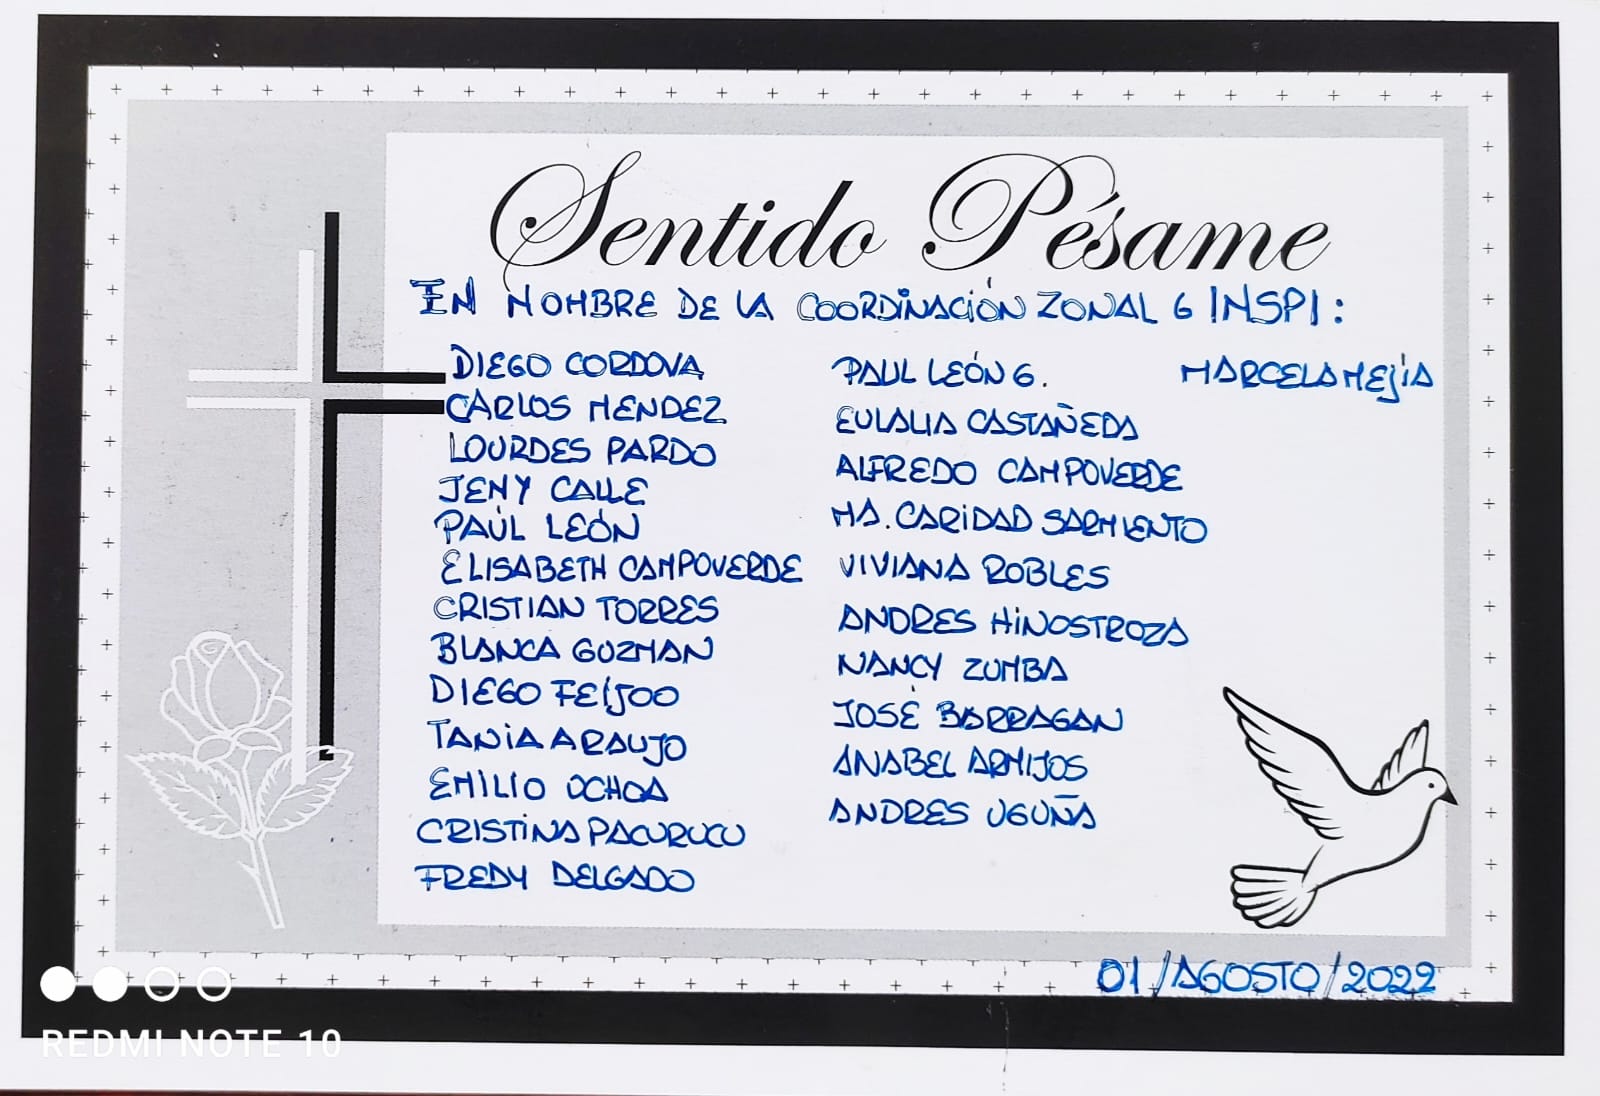 Sentido Pésame
EN NOMBRE DE LA COORDINACIÓN ZONAL 6 INSPI:
DIEGO CORDOVA
CARLOS MENDEZ
LOURDES PARDO
JENY CALLE
PAÚL LEÓN
ELISABETH CAMPOVERDE
CRISTIAN TORRES
BLANCA GUZMAN
DIEGO FEÍJOO
TANIA ARAUJO
EMILIO OCHOA
CRISTINA PACURUCU
FREDY DELGADO
PAUL LEÓN G.
EULALIA CASTAÑEDA
ALFREDO CAMPOVERDE
MA. CARIDAD SARMIENTO
VIVIANA ROBLES
ANDRES HINOSTROZA
NANCY ZUMBA
JOSÉ BARRAGAN
ANABEL ARMIJOS
ANDRES UGUÑA
MARCELA MEJÍA
01/AGOSTO/2022
REDMI NOTE 10